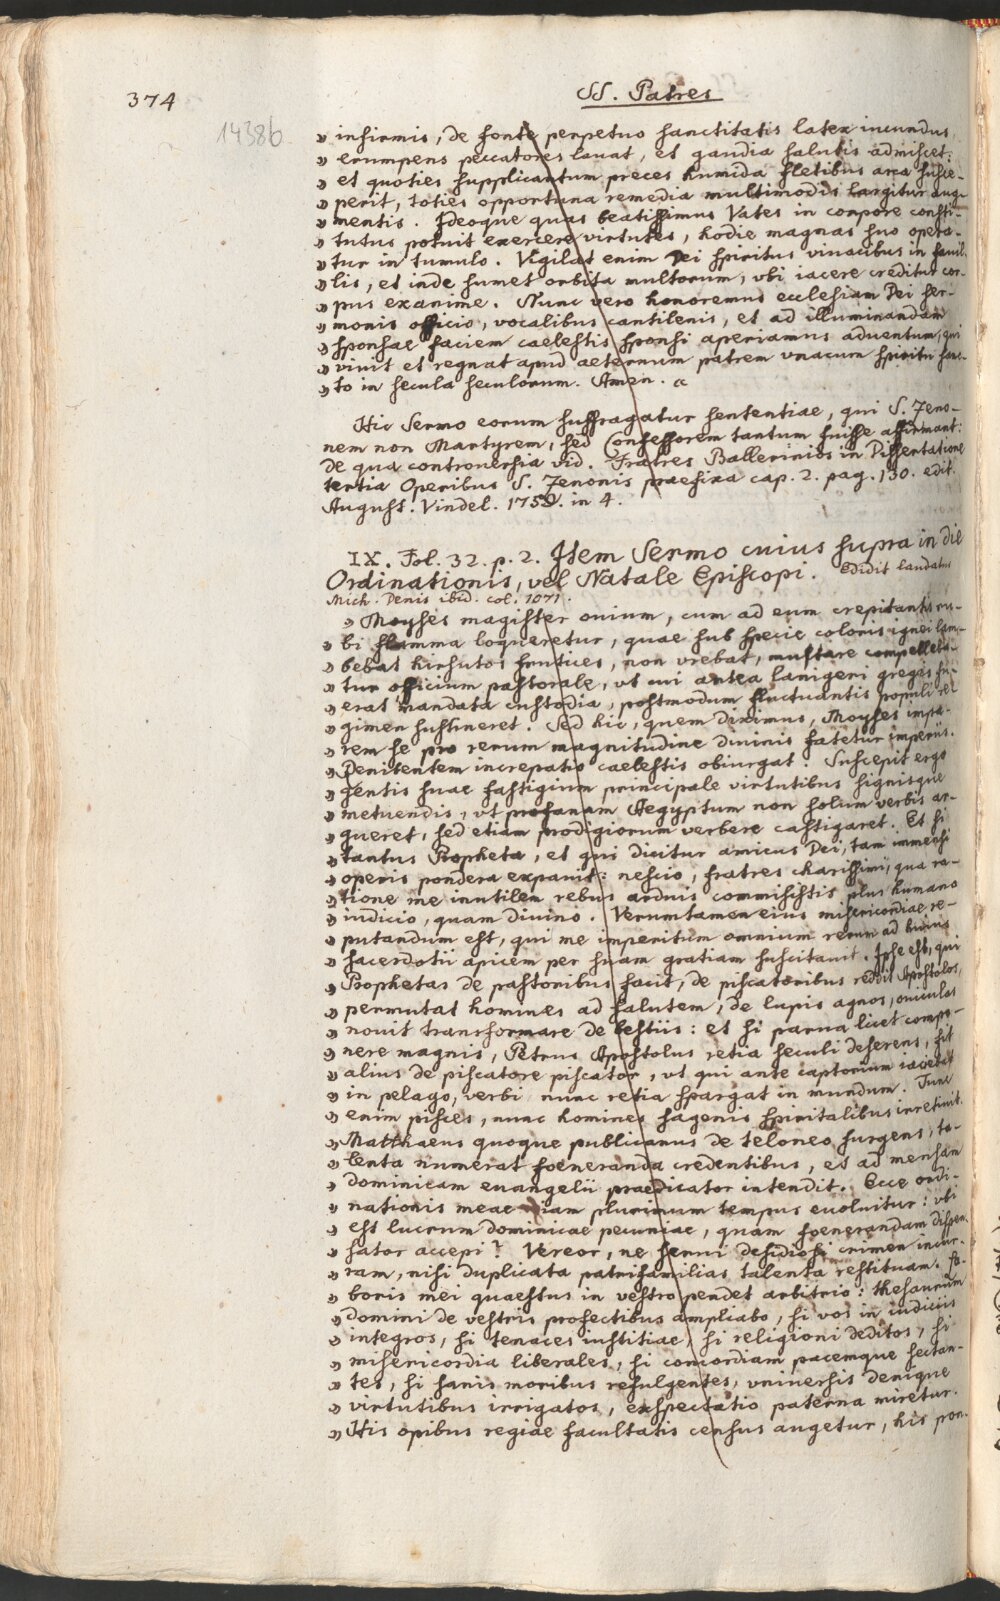 374
SS. Patres
14386
» infirmis, de fonte perpetuo sanctitatis latex iucundus
» erumpens peccatores lauat, et gaudia salutis admiscet:
» et quoties supplicantum preces humida fletibus area susce-
» perit, toties opportuna remedia multimodis largitur aug-
» mentis. Ideoque quas beatissimus Vates in corpore consti-
» tutus potuit exercere virtutes, hodie magnas suo opera-
» tur in tumulo. Vigilat enim Dei spiritus viuacibus in fauil-
» lis, et inde sumet orbita multorum, vbi iacere creditur cor-
» pus exanime. Nunc vero honoremus ecclesiam Dei ser-
» monis officio, vocalibus cantilenis, et ad illuminandam
» sponsae faciem caelestis sponsi aperiamus aduentum, qui
» viuit et regnat apud aeternum patrem vnacum spiritu sanc-
» to in secula seculorum. Amen. «
Hic Sermo eorum suffragatur sententiae, qui S. Zeno-
nem non Martyrem, sed Confessorem tantum fuisse affirmant:
de qua controuersia vid. Fratres Ballerinios in Dissertatione
tertia Operibus S. Zenonis praefixa cap. 2. pag. 130. edit.
August. Vindel. 1758. in 4.
IX. Fol. 32. p. 2. Item Sermo cuius supra in die
Ordinationis, vel Natale Episcopi. Edidit laudatus
Mich. Denis ibid. col. 1071.
» Moyses magister ouium, cum ad eum crepitantis ru-
» bi flamma loqueretur, quae sub specie coloris ignei lam-
» bebat hirsutos frutices, non vrebat, mutare compelleba-
» tur officium pastorale, vt cui antea lanigeri gregis fu-
» erat mandata custodia, postmodum fluctuantis populi re-
» gimen sustineret. Sed hic, quem diximus, Moyses impa-
» rem se pro rerum magnitudine diuinis fatetur imperiis.
» Penitentem increpatio caelestis obiurgat. Suscepit ergo
» gentis suae fastigium principale virtutibus signisque
» metuendis, vt profanam Aegyptum non solum verbis ar-
» gueret, sed etiam prodigiorum verbere castigaret. Et si
» tantus Propheta, et qui dicitur amicus Dei, tam immensi
» operis pondera expauit: nescio, fratres charissimi, qua ra-
» tione me inutilem rebus arduis commisistis plus humano
» iudicio, quam diuino. Verumtamen eius misericordiae re-
» putandum est, qui me imperitum omnium rerum ad huius
» sacerdotii apicem per suam gratiam suscitauit. Ipse est, qui
» Prophetas de pastoribus facit, de piscatoribus reddit Apostolos,
» permutat homines ad salutem, de lupis agnos, ouiculas
» nouit transformare de bestiis: et si parua licet compo-
» nere magnis, Petrus Apostolus retia seculi deserens, fit
» alius de piscatore piscator, vt qui ante captorium iaciebat
» in pelago, verbi nunc retia spargat in mundum. Tunc
» enim pisces, nunc homines sagenis spiritalibus inretinit.
» Matthaeus quoque publicanus de teloneo surgens, ta-
» lenta numerat foeneranda credentibus, et ad mensam
» dominicam euangelii praedicator intendit. Ecce ordi-
» nationis meae etiam plurimum tempus euoluitur: vbi
» est lucrum dominicae pecuniae, quam foenerandam dispen-
» sator accepi? Vereor, ne serui desidiosi crimen incur-
» ram, nisi duplicata patrisfamilias talenta restituam. La-
» boris mei quaestus in vestro pendet arbitrio: thesaurum
» domini de vestris profectibus ampliabo, si vos in iudiciis
» integros, si tenaces iustitiae, si religioni deditos, si
» misericordia liberales, si concordiam pacemque sectan-
» tes, si sanis moribus refulgentes, vniuersis denique
» virtutibus irrigatos, exspectatio paterna miretur.
» His opibus regiae facultatis census augetur, his pon-